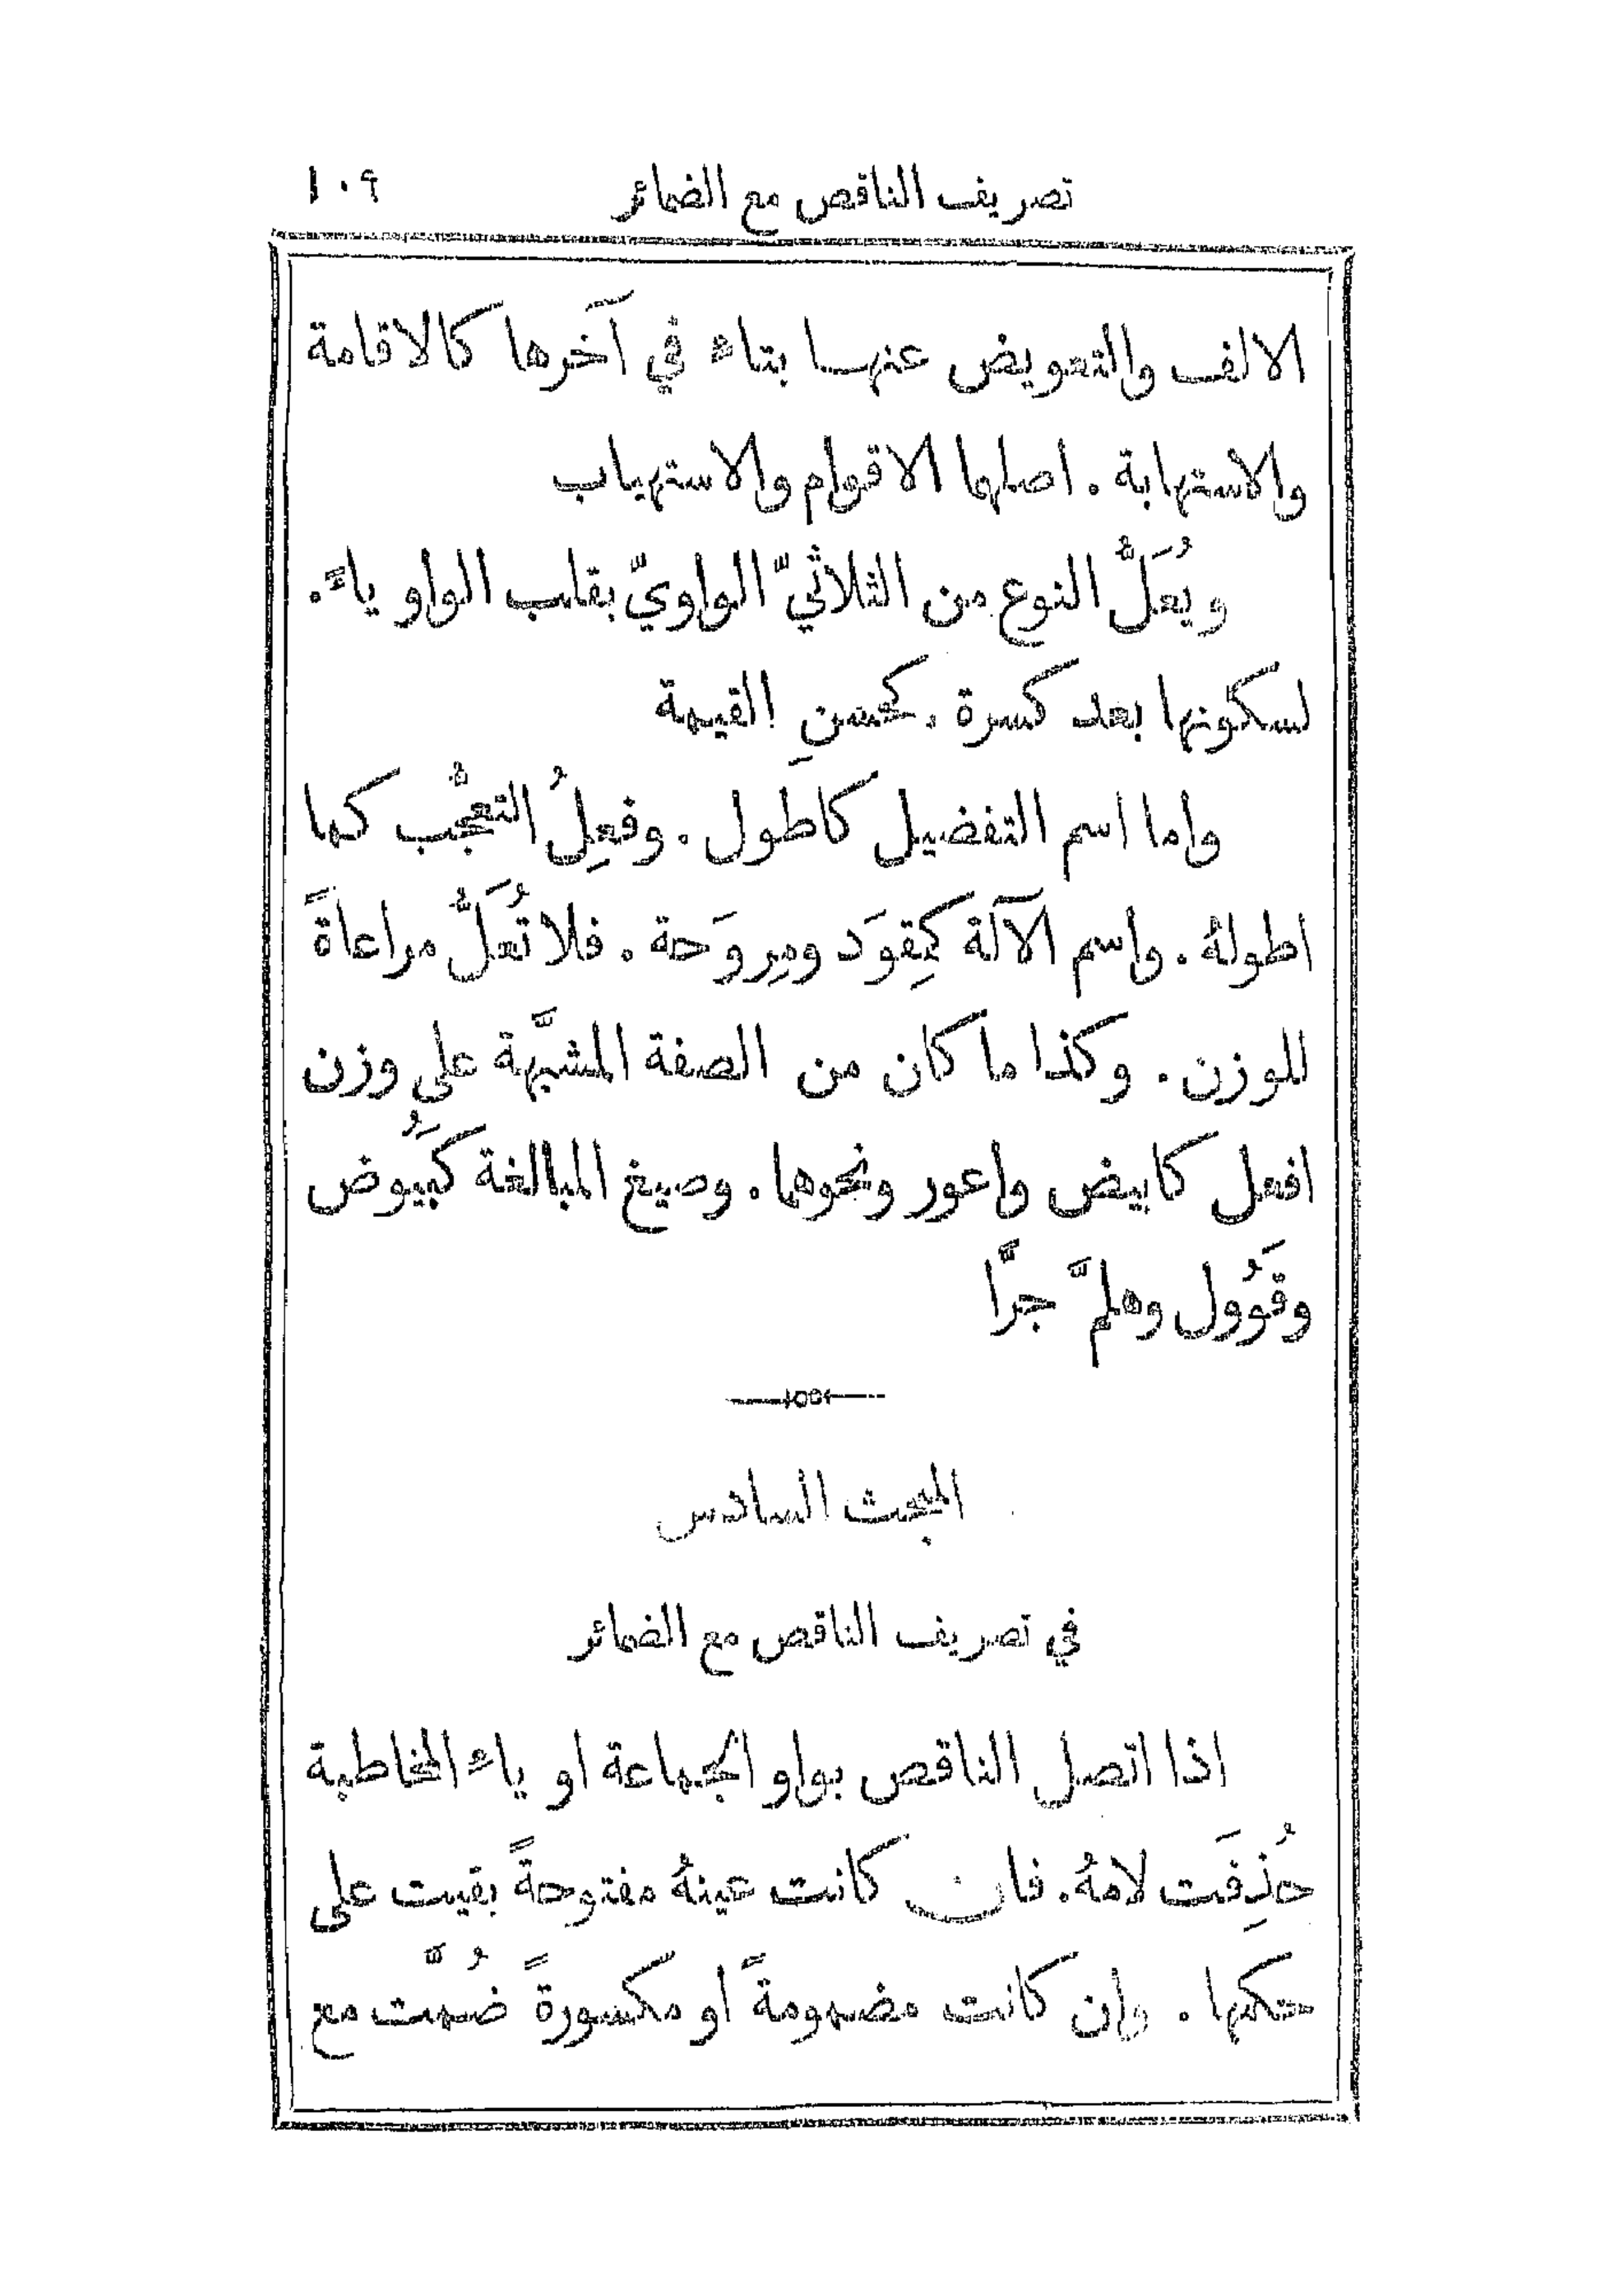 تصريف الناقص مع الضمائر ١٠٩
الالف والتعويض عنها بتاء في آخرها كالاقامة
والاستهابة . اصلها الاقوام والاستهياب
ويُعَلُّ النوع من الثلاثيّ الواويّ بقلب الواو ياءً .
لسكونها بعد كسرة . كحسنِ القيمة
واما اسم التفضيل كاطول . وفعِلُ التعجُّب كما
اطولهُ . واسم الآلة كمِقوَد ومِروَحة . فلا تُعَلُّ مراعاةً
للوزن . وكذا ما كان من الصفة المشبَّهة على وزن
افعل كابيض واعور ونحوهما . وصيغ المبالغة كبَيُوض
وقَوُول وهلمَّ جرًّا
المبحث السادس
في تصريف الناقص مع الضمائر
اذا اتصل الناقص بواو الجماعة او ياء المخاطبة
حُذِفَت لامهُ . فان كانت عينهُ مفتوحةً بقيت على
حكمها . وان كانت مضمومةً او مكسورةً ضُمَّت مع